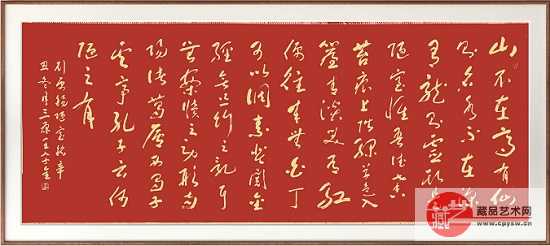 山不在高有仙
则名水不在深
有龙则灵斯是
陋室惟吾德馨
苔痕上阶绿草色入
帘青谈笑有鸿
儒往来无白丁
可以调素琴阅金
经无丝竹之乱耳
无案牍之劳形南
阳诸葛庐西蜀子
云亭孔子云何
陋之有
刘禹锡陋室铭辛
丑冬月三原王
藏品艺术网
www.cpysw.cn